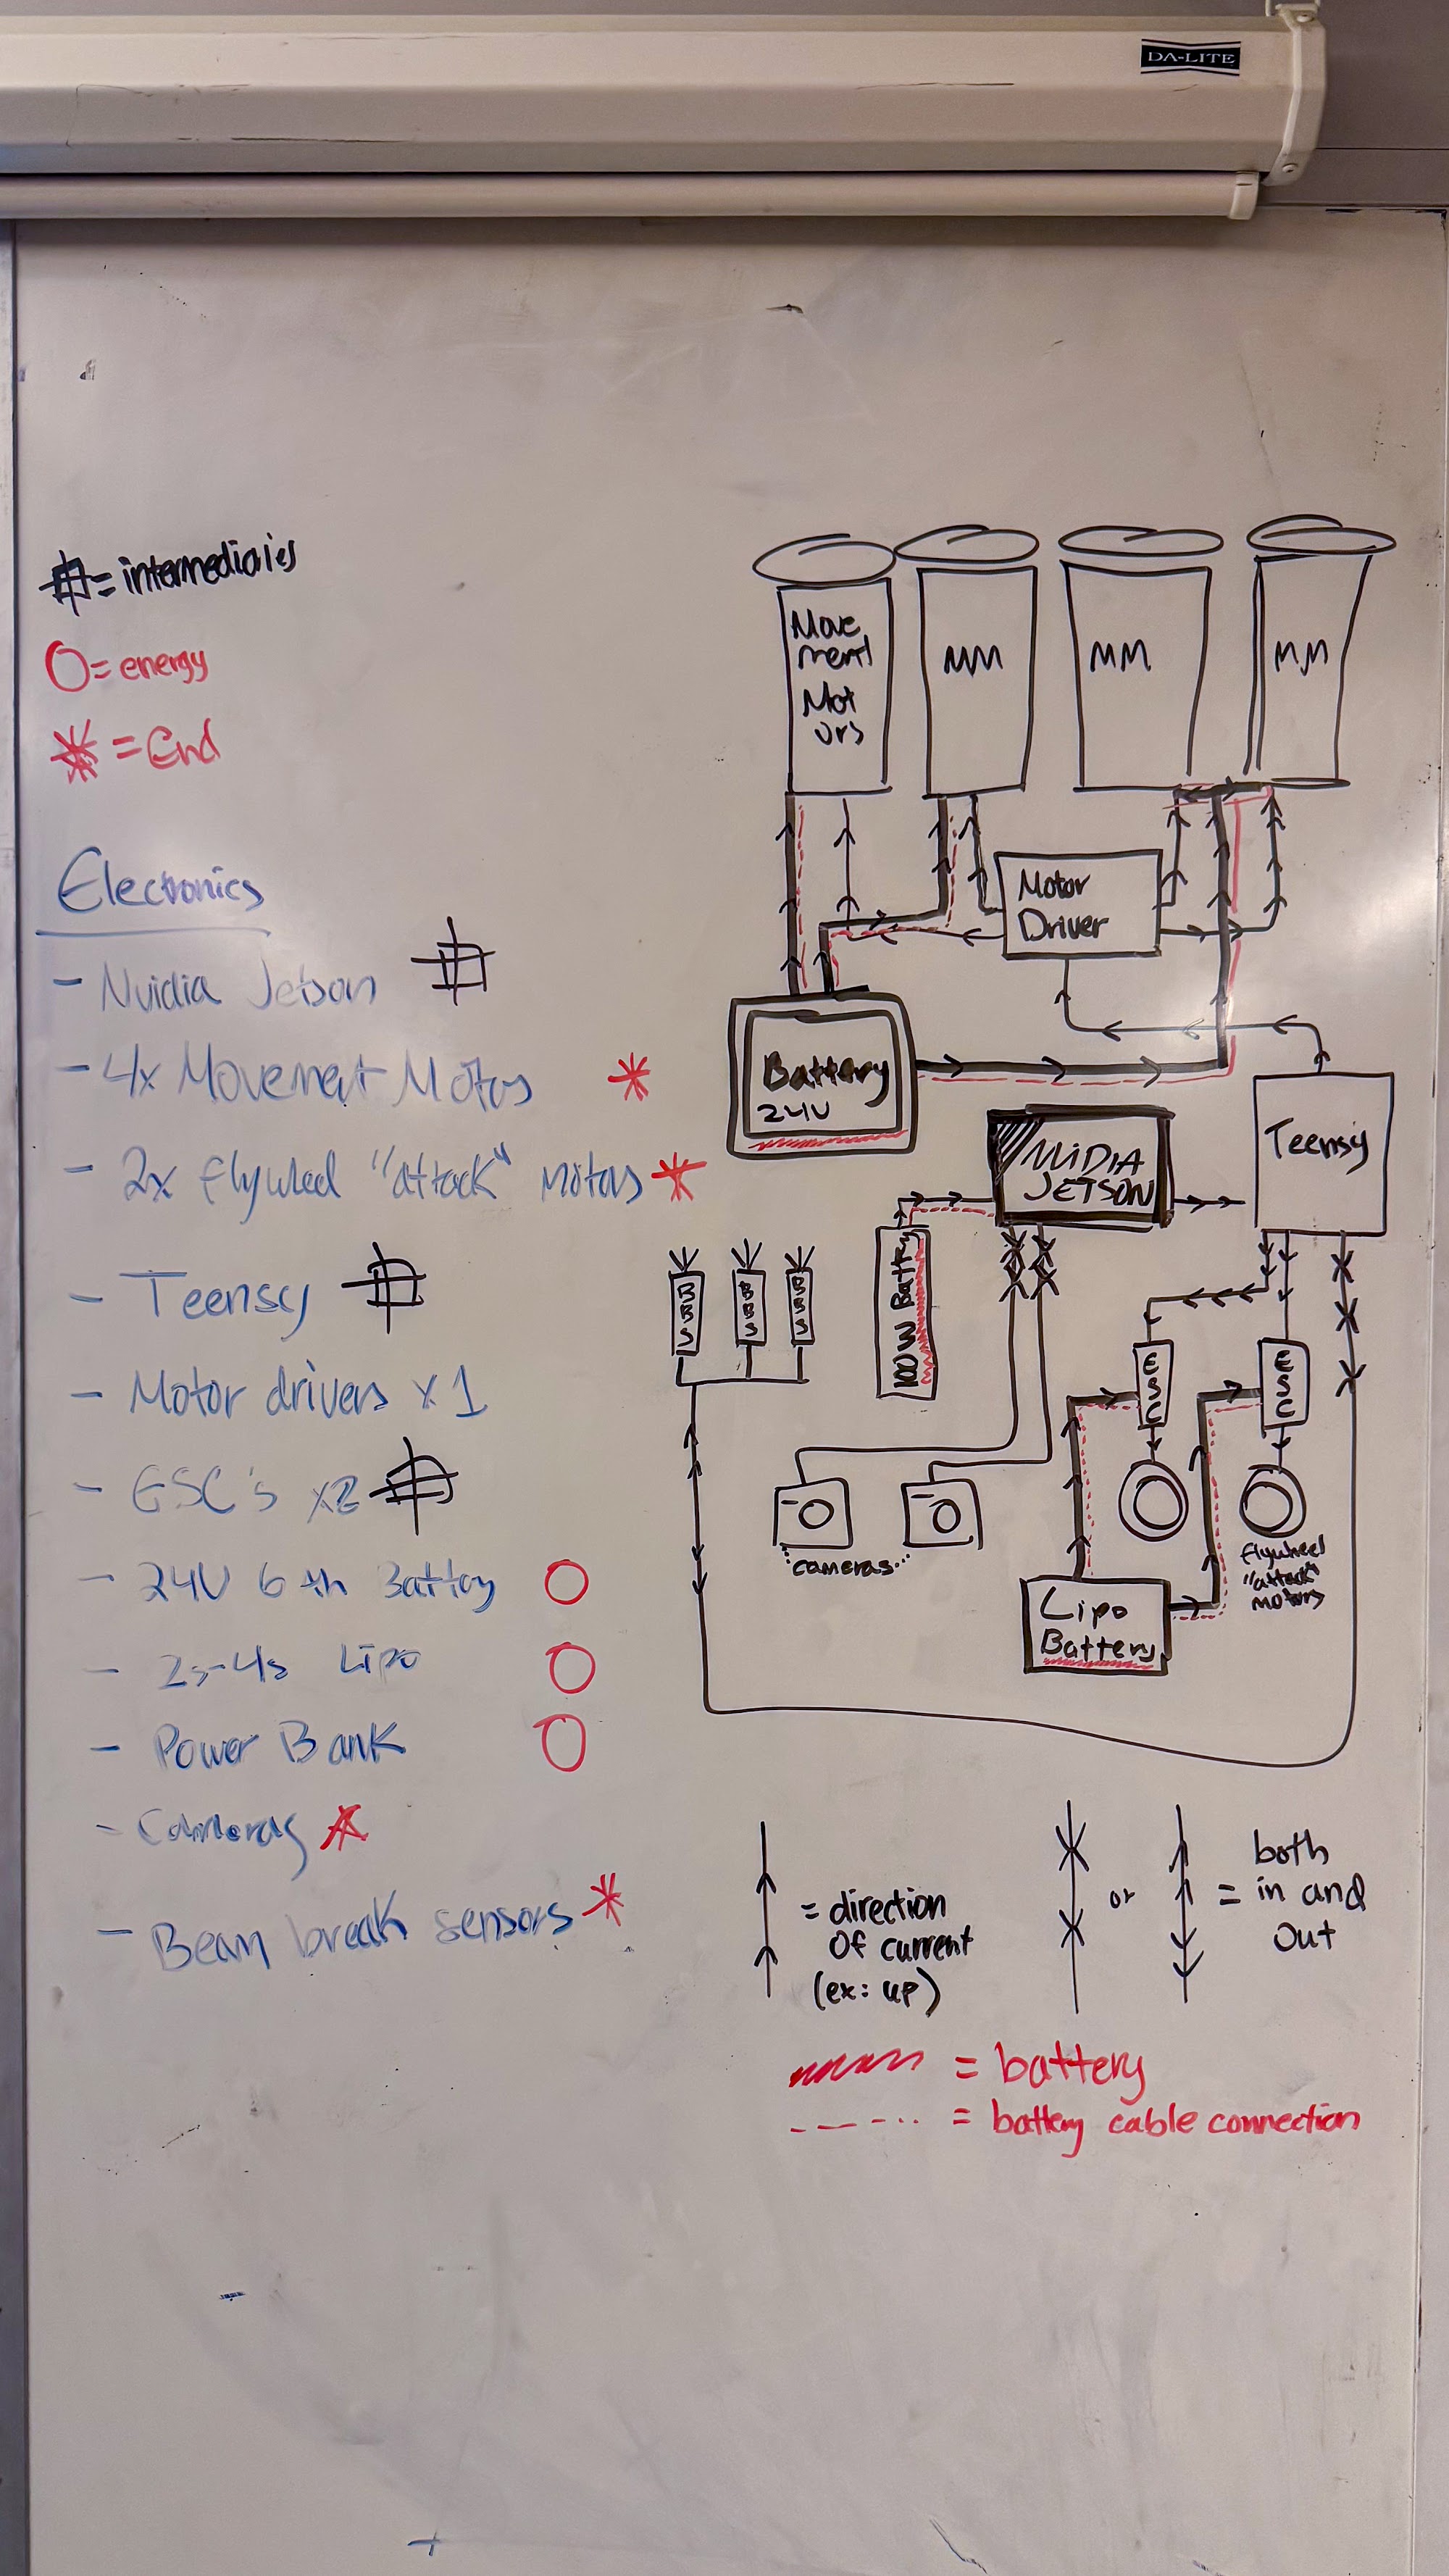 DA-LITE
= intermediaries
= energy
= End
Electronics
- Nvidia Jetson
- 4x Movement Motors
- 2x flywheel "attack" motors
- Teensy
- Motor drivers x1
- ESC's x2
- 24V 6 Battery
- 2s-4s Lipo
- Power Bank
- Cameras
- Beam break sensors
Move
ment
Mot
ors
MM
MM
MM
Motor
Driver
Battery
24V
NVIDIA
JETSON
Teensy
BBS
BBS
BBS
100W Battery
ESC
ESC
cameras
flywheel
"attack"
motors
Lipo
Battery
= direction
of current
(ex: up)
or
= both
in and
out
= battery
= battery cable connection